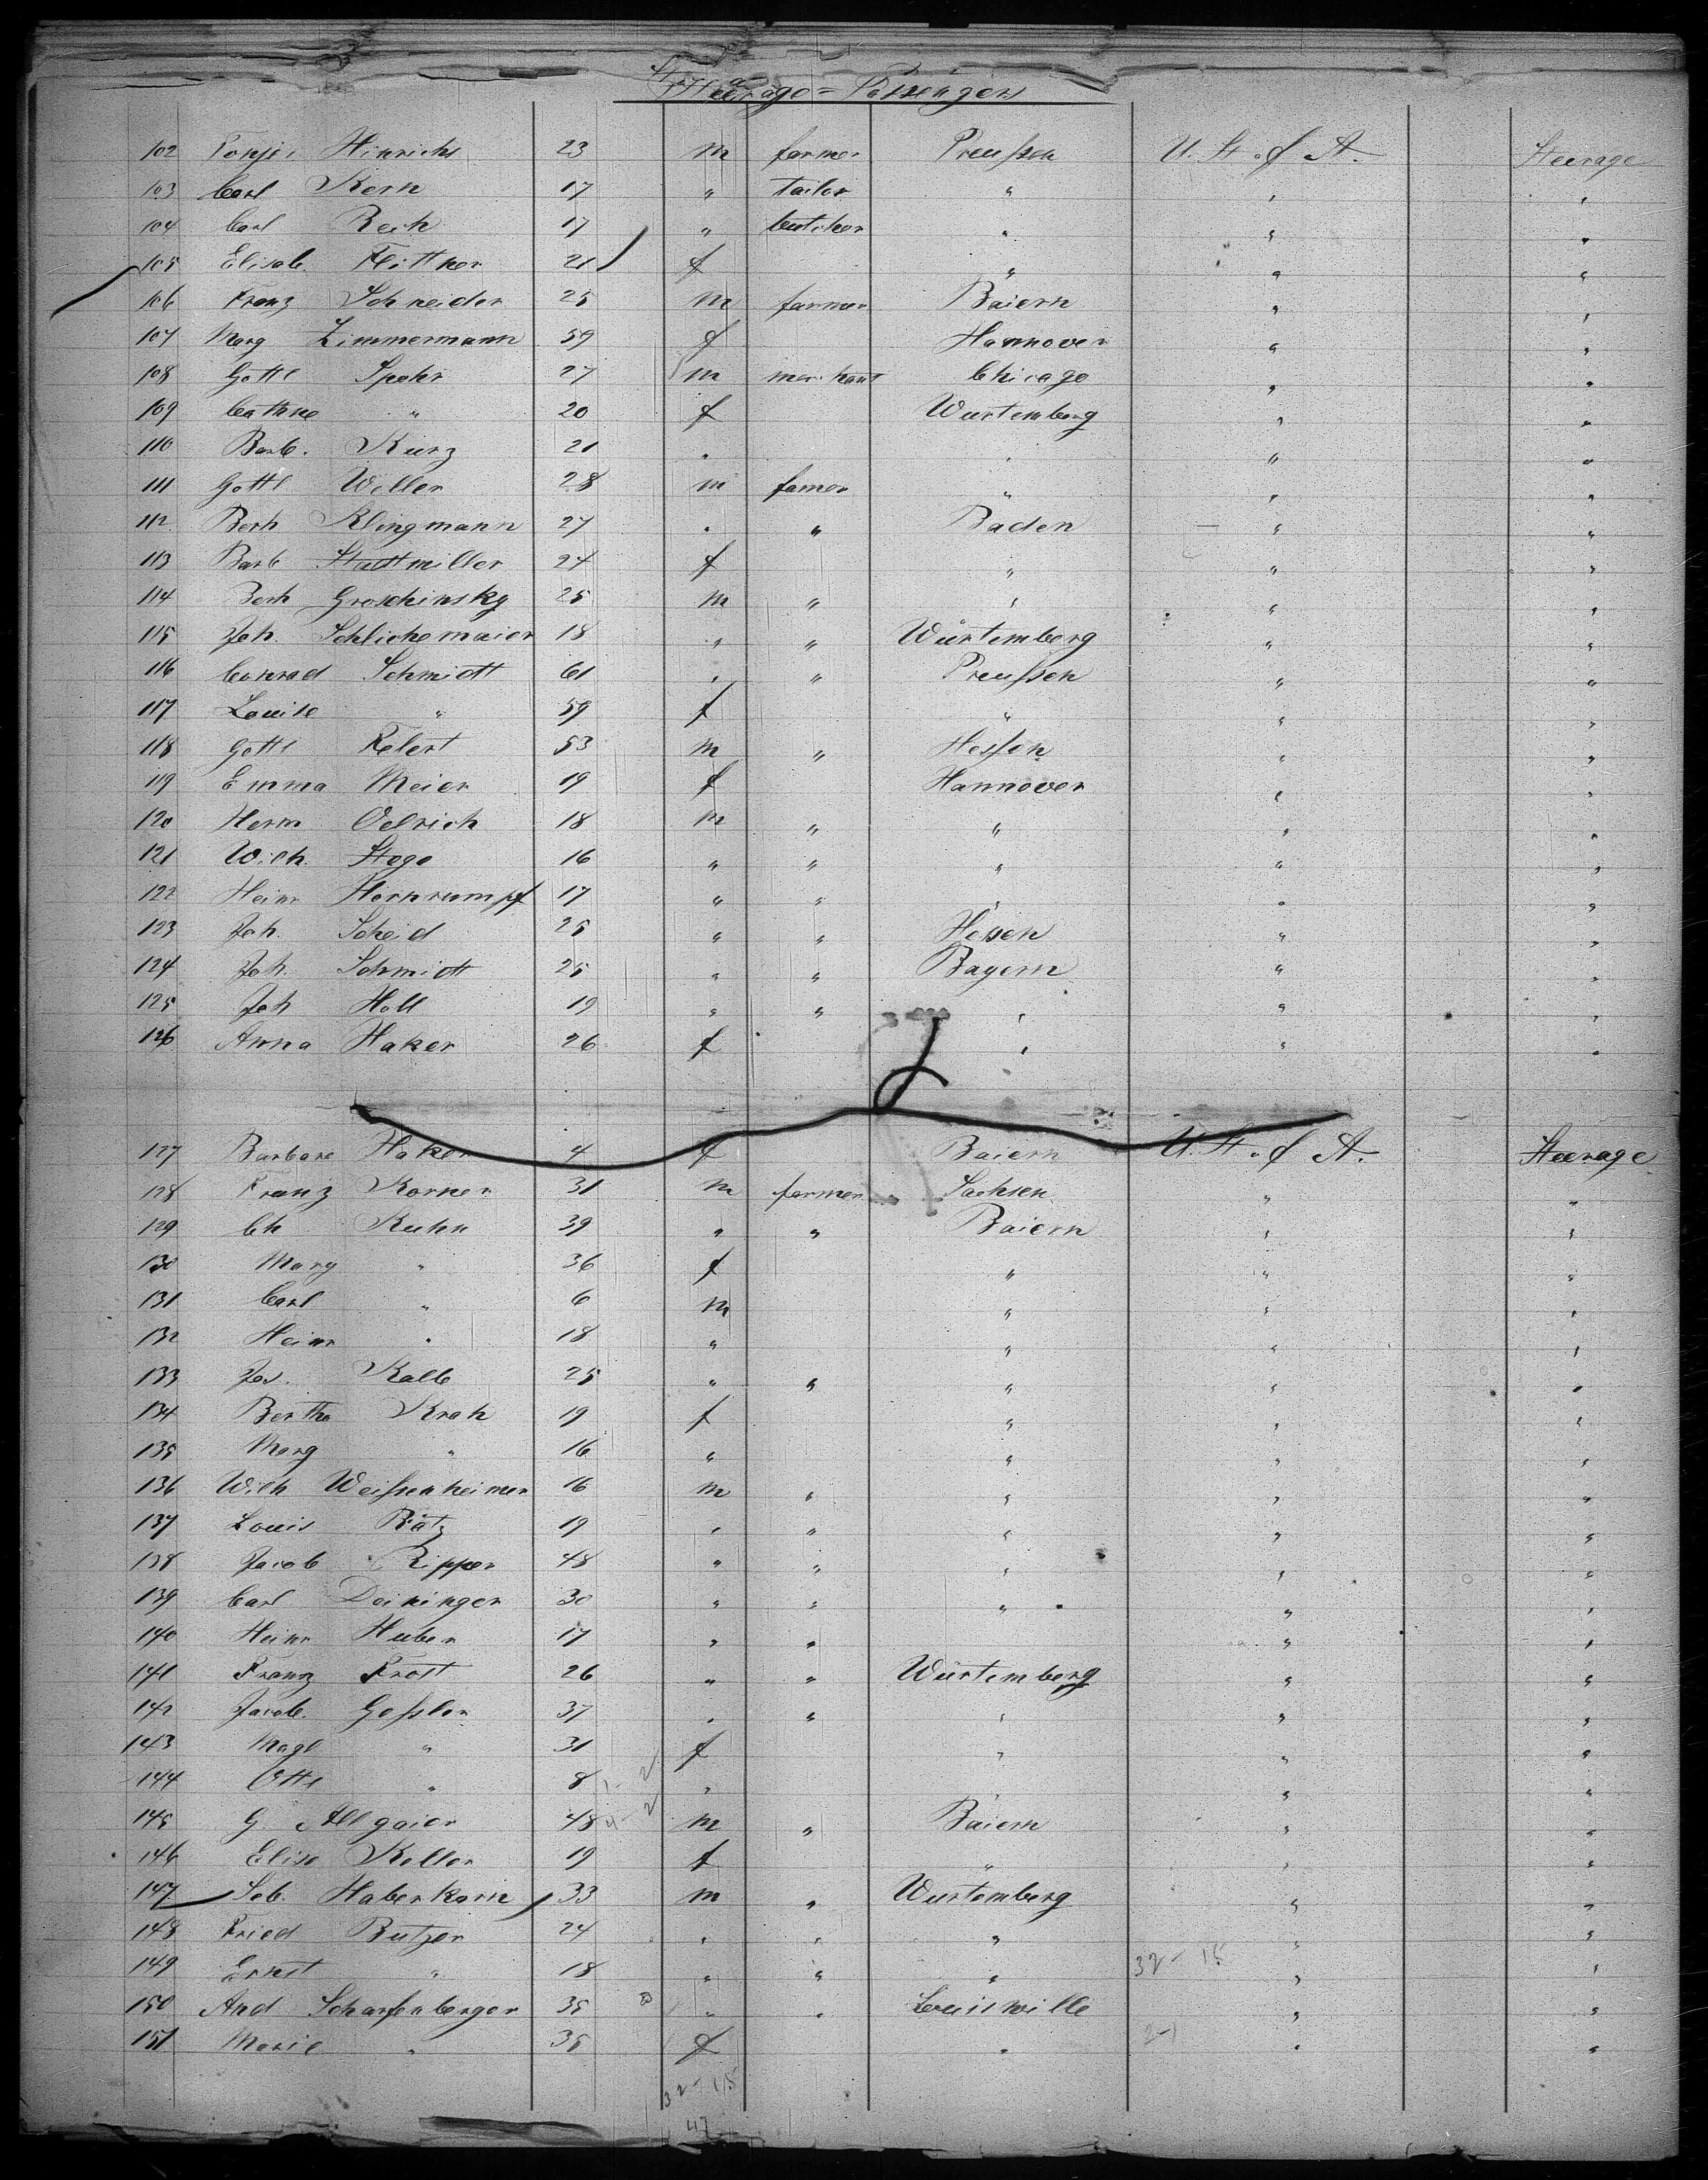 Steerage = Passengers
102 Tonjes Hinrichs 23 m farmer Preussen U. St. of A. Steerage
103 Carl Kern 17 " tailor " " "
104 Carl Rech 17 " butcher " " "
105 Elisab. Flittner 21 f " " "
106 Franz Schneider 25 m farmer Baiern " "
107 Marg Zimmermann 59 f Hannover " "
108 Gottl Spohr 27 m merchant Chicago " "
109 Cathne " 20 f Wurtemberg " "
110 Barb. Kurz 21 " " " "
111 Gottl Weller 28 m famer " " "
112 Berh Klingmann 27 " " Baden " "
113 Barb Stadtmiller 24 f " " "
114 Berh Groschinsky 25 m " " " "
115 Joh. Schlichemaier 18 " " Würtemberg " "
116 Conrad Schmidt 61 " " Preussen " "
117 Louise " 59 f " " "
118 Gottl Relert 53 m " Hessen " "
119 Emma Meier 19 f Hannover " "
120 Herm Oelrich 18 m " " " "
121 Wilh. Stege 16 " " " " "
122 Heinr Hornrumpf 17 " " " " "
123 Joh. Scheid 25 " " Hessen " "
124 Joh. Schmidt 25 " " Bayern " "
125 Joh Holl 19 " " " " "
126 Anna Haker 26 f " " "
127 Barbara Haker 4 f Baiern U. St. of A. Steerage
128 Franz Korner 31 m farmer Sachsen " "
129 Ch Kuhn 39 " " Baiern " "
130 Marg " 36 f " " "
131 Carl " 6 m " " "
132 Heinr " 18 " " " "
133 Jos. Kalb 25 " " " " "
134 Bertha Krah 19 f " " "
135 Marg " 16 " " " "
136 Wilh Weissenheimer 16 m " " " "
137 Louis Rätz 19 " " " " "
138 Jacob Ripper 48 " " " " "
139 Carl Deininger 30 " " " " "
140 Heinr Huber 17 " " " " "
141 Franz Frost 26 " " Würtemberg " "
142 Jacob. Gessler 37 " " " " "
143 Magl " 31 f " " "
144 Otti " 8 " " " "
145 G Allgaier 48 m " Baiern " "
146 Elise Keller 19 f " " "
147 Seb. Haberkorn 33 m " Wurtemberg " "
148 Fried Butzer 24 " " " " "
149 Ernst " 18 " " " 32-15 " "
150 And Scharfenberger 35 " " Louisville " "
151 Marie " 35 f " 2-1 " "
32-15
47